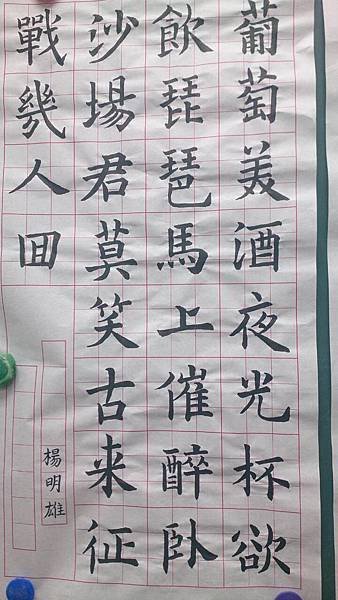 葡萄美酒夜光杯欲
飲琵琶馬上催醉卧
沙場君莫笑古来征
戰幾人回
楊明雄